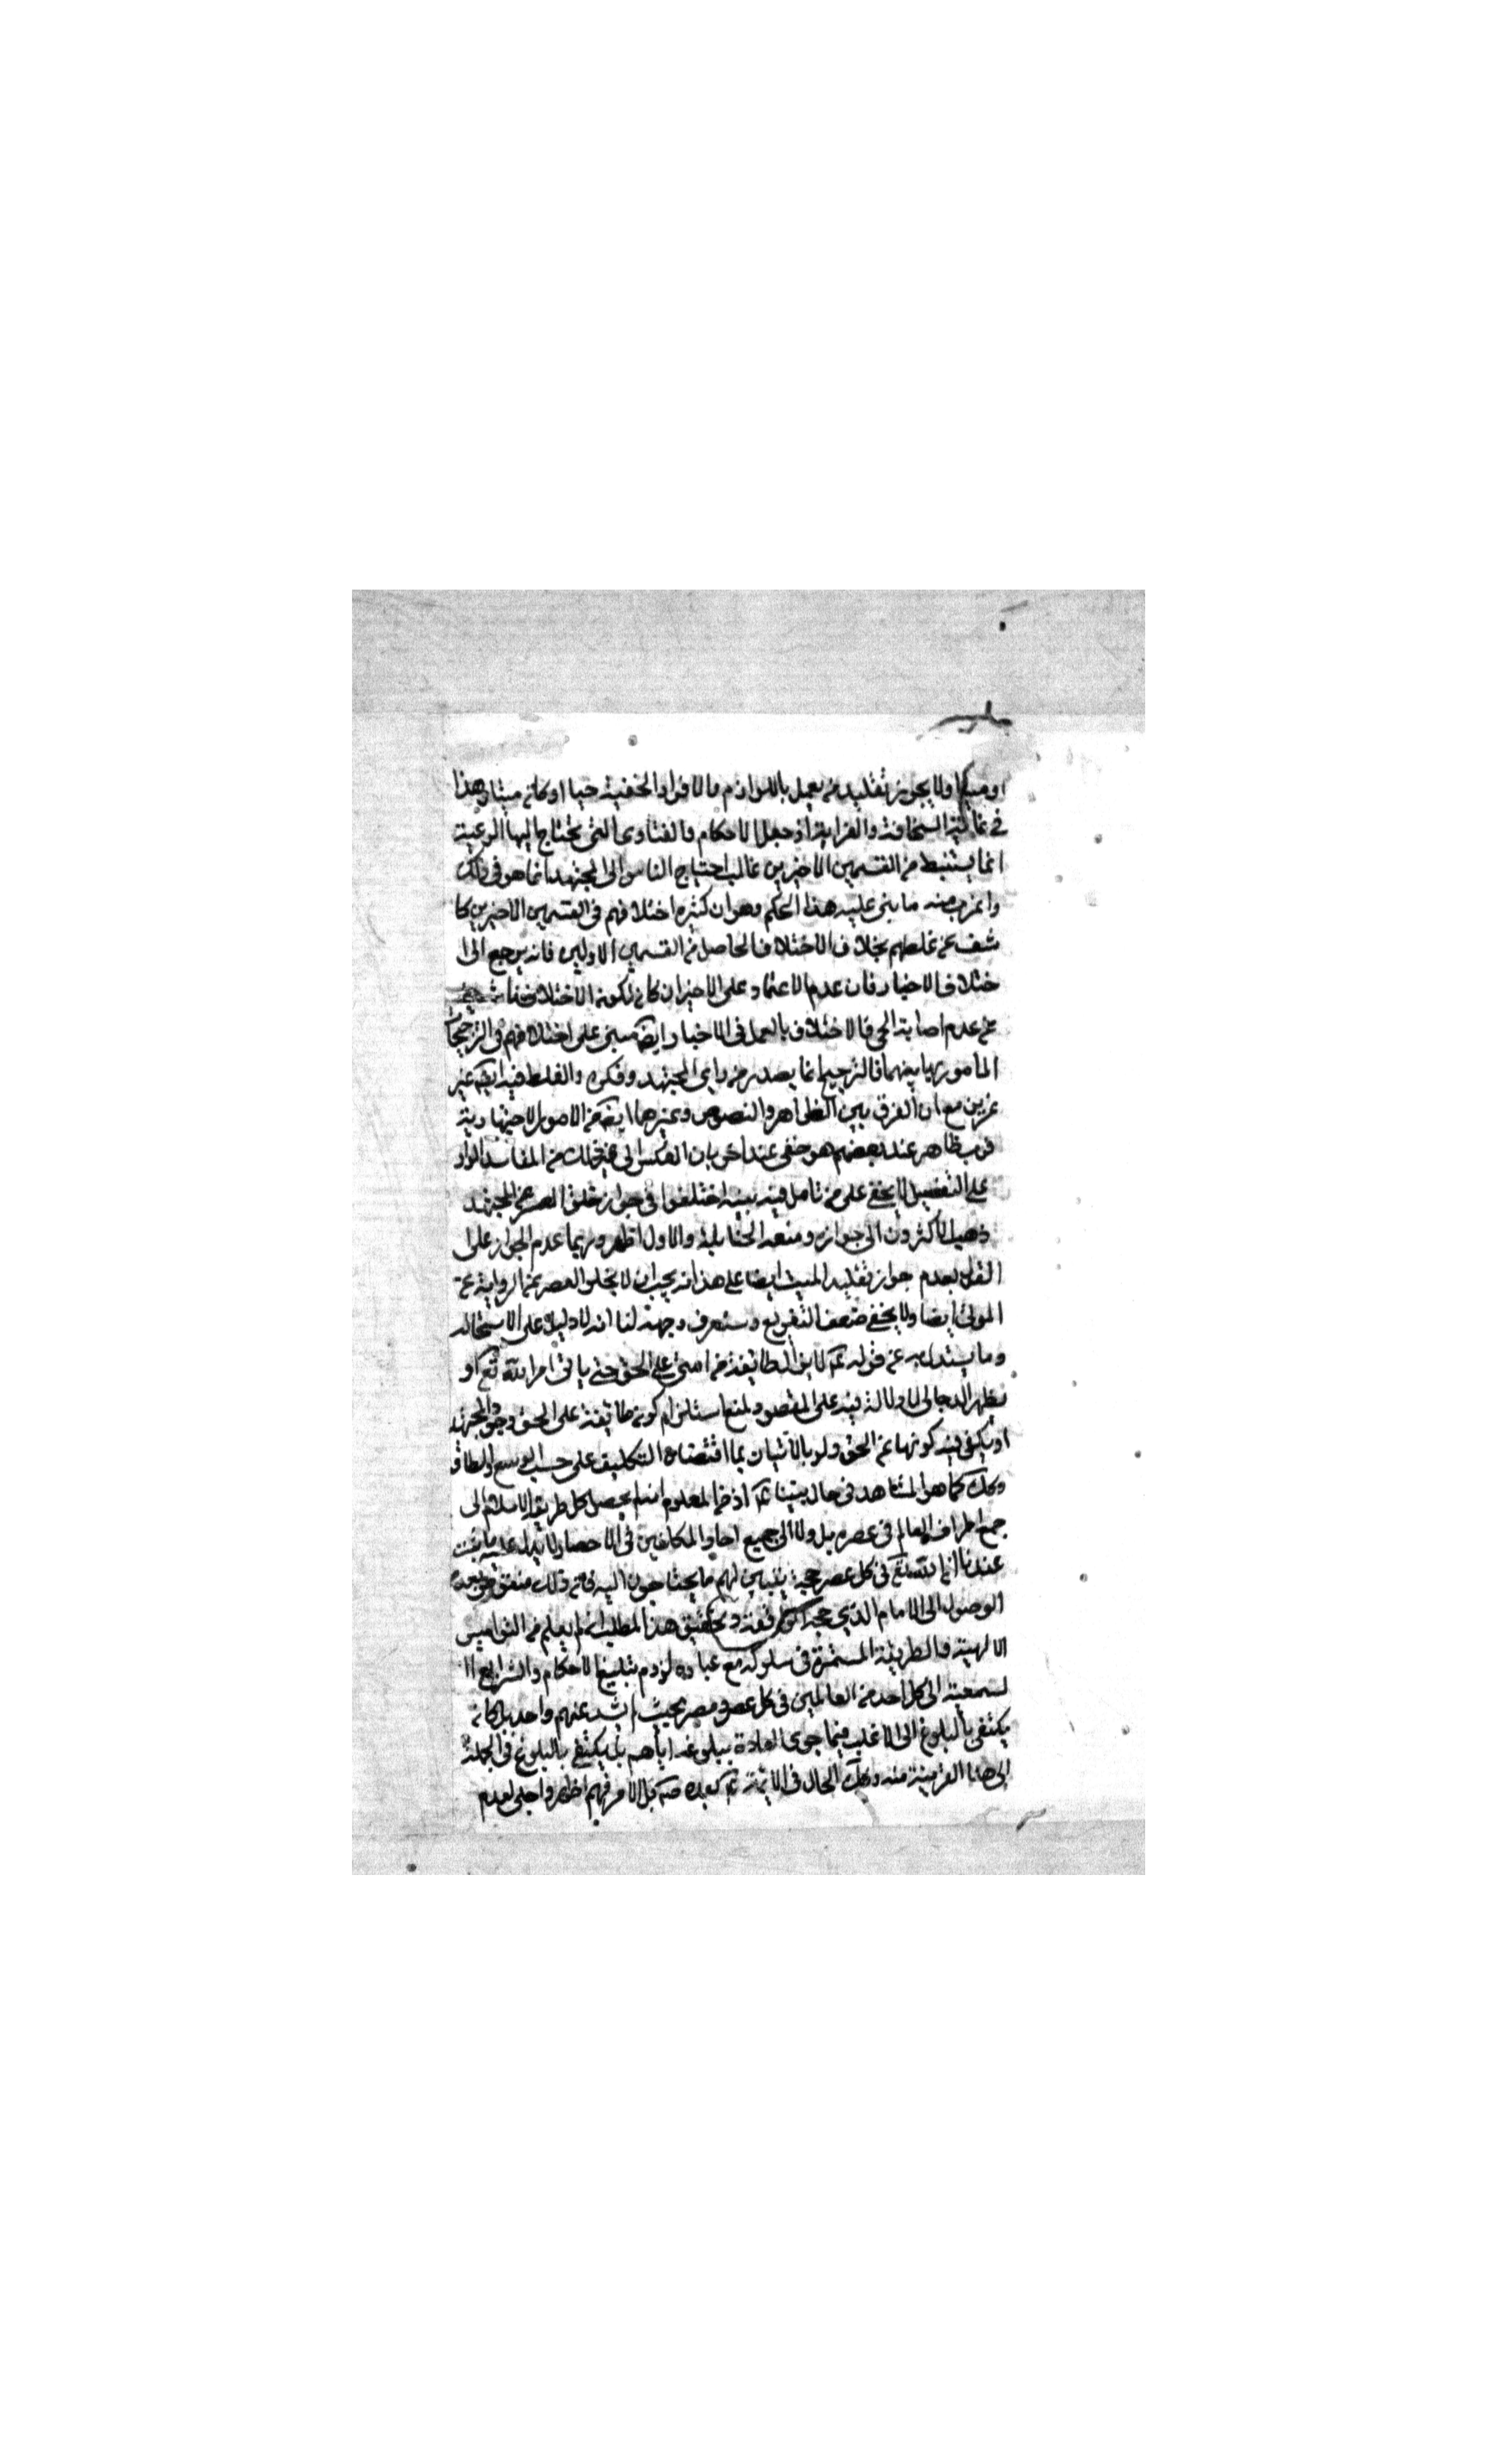 او ميتا ولا يجوز تقليد من يعمل باللوازم والافراد الخفية حيا او كان ميتا وهذا
في غاية السخافة والغرابة اذ جعل الاحكام والفتاوى التي يحتاج اليها الرعية
انما يستنبط من القسمين الاخيرين غالب احتياج الناس الى المجتهد انما هو في ذلك
واغرب منه ما بنى عليه هذا الحكم وهو ان كثرة اختلافهم في القسمين الاخيرين كا
شف عن غلطهم بخلاف الاختلاف الحاصل من القسمين الاولين فانه يرجع الى ا
ختلاف الاخبار فان عدم الاعتماد على الاخيرين ان كان لكونه الاختلاف
عن عدم اصابة الحق فالاختلاف بالعمل في الاخبار ايضا مبنى على اختلافهم في الترجيحات
المامور بها بينهما فالترجيح انما يصدر من راى المجتهد وفكره والغلط فيه ايضا غير
عزيز مع ان الفرق بين الظاهر والنصوص وغيرهما ايضا من الامور الاجتهادية
فرب ظاهر عند بعضهم هو خفى عند اخر بان العكس الى غير ذلك من المفاسد الوارد
على التفصيل لا يخفى على من تامل فيه اختلفوا في جواز خلو العصر عن المجتهد
ذهب الاكثرون الى جوازه ومنعه الحنابلة والاول اظهر وربما عدم الجواز على
القول بعدم جواز تقليد الميت ايضا على هذا انه يجب ان لا يخلو العصر عن الرواية عن
الموتى ايضا ولا يخفى ضعف التفريع وستعرف وجهه لنا انه لا دليل على الاستحالة
وما يستدل به من قوله لا يزال طائفة من امتى على الحق حتى ياتى امر الله او
يظهر الدجال لا دلالة فيه على المقصود لمنع استلزام كون طائفة على الحق وجود المجتهد
اذ يكفى فيه كونها على الحق ولو بالاتيان بما اقتضاه التكليف على حسب الوسع والطاقة
وذلك كما هو المشاهد في حال نبينا اذ من المعلوم انه لم يحصل كل طريقة الاسلام الى
جمع اطراف العالم في عصره بل ولا الى جميع احاد المكلفين في الاحصار لا يدل عليه ما ثبت
عندنا ان لله تع في كل عصر حجة يتبين لهم ما يحتاجون اليه فان ذلك منقوض بعدم
الوصول الى الامام الذي حجة الله وتحقيق هذا المطلب انه لم يعلم من النواميس
الالهية والطريقة المستمرة في سلوكه مع عباده لزوم تبليغ الاحكام والشرايع ا
لسمعية الى كل احد من العالمين في كل عصر ومصر بحيث لم يشذ عنهم واحد بل كان
يكتفى بالبلوغ الى الاغلب فيما جرى العادة ببلوغه اياهم بل يكتفى بالبلوغ في الجملة
الى هذا القرينة منه وكذلك الحال في الائمة بعده بل الامر فيهم اظهر واجلى لعدم